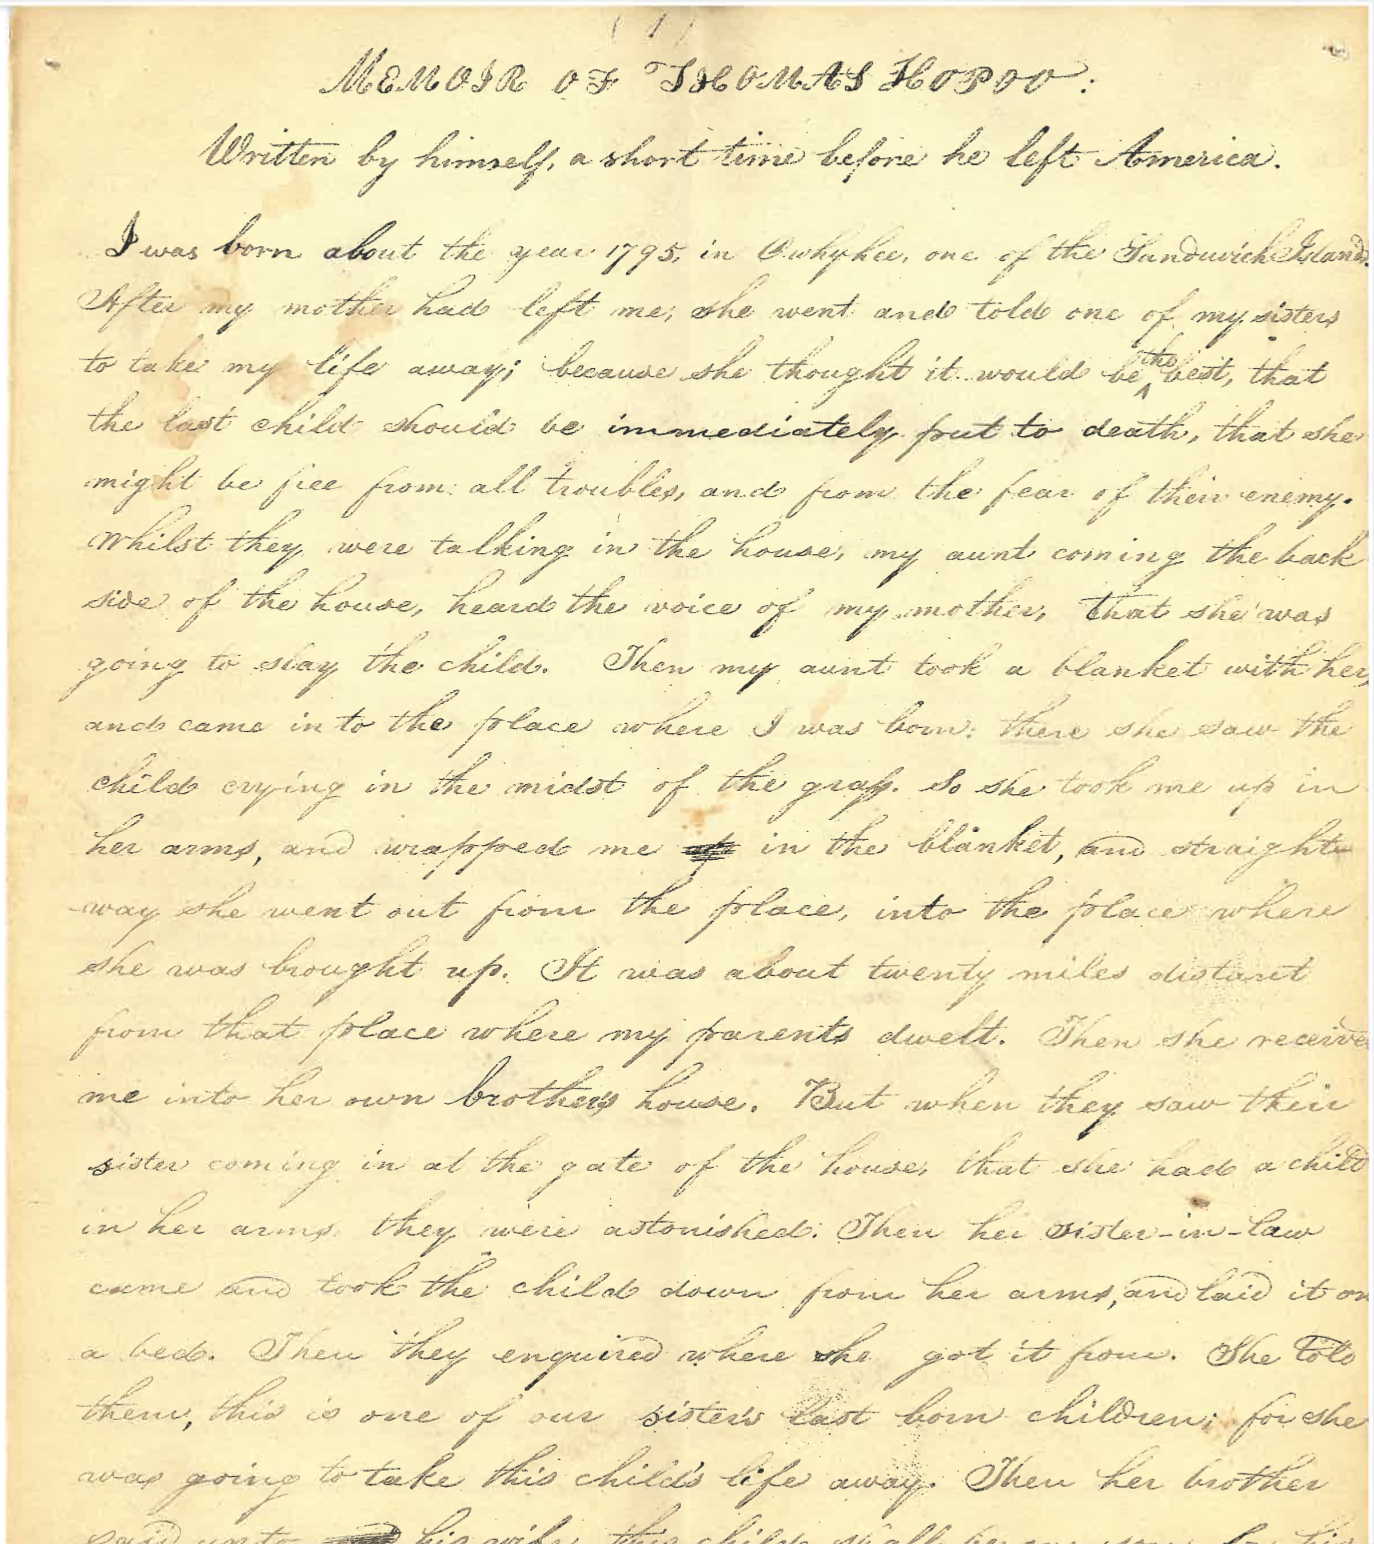 (1)
MEMOIR OF THOMAS HOPOO:
Written by himself, a short time before he left America.
I was born about the year 1795, in Owhyhee, one of the Sandwich Islands.
After my mother had left me, she went and told one of my sisters
to take my life away; because she thought it would be the best, that
the last child should be immediately put to death, that she
might be free from all troubles, and from the fear of their enemy.
Whilst they were talking in the house, my aunt coming the back
side of the house, heard the voice of my mother, that she was
going to slay the child. Then my aunt took a blanket with her,
and came into the place where I was born: there she saw the
child crying in the midst of the grass. So she took me up in
her arms, and wrapped me up in the blanket, and straight-
way she went out from the place, into the place where
she was brought up. It was about twenty miles distant
from that place where my parents dwelt. Then she received
me into her own brother's house. But when they saw their
sister coming in at the gate of the house, that she had a child
in her arms, they were astonished. Then her sister-in-law
came and took the child down from her arms, and laid it on
a bed. Then they enquired where she got it from. She told
them, this is one of our sister's last born children; for she
was going to take this child's life away. Then her brother
said unto his wife, this child shall be our son. So his